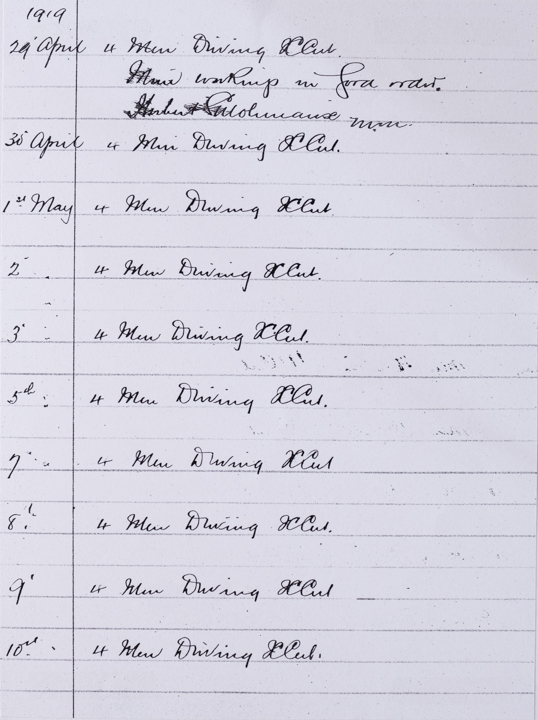 1919
29 April 4 Men Driving XCut.
Mine workings in good order.
Herbert
30 April 4 Men Driving XCut.
1st May 4 Men Driving XCut
2 " 4 Men Driving XCut.
3 " 4 Men Driving XCut.
5rd " 4 Men Driving XCut.
7 " 4 Men Driving XCut
8 " 4 Men Driving XCut.
9 4 Men Driving XCut
10rd " 4 Men Driving XCut.